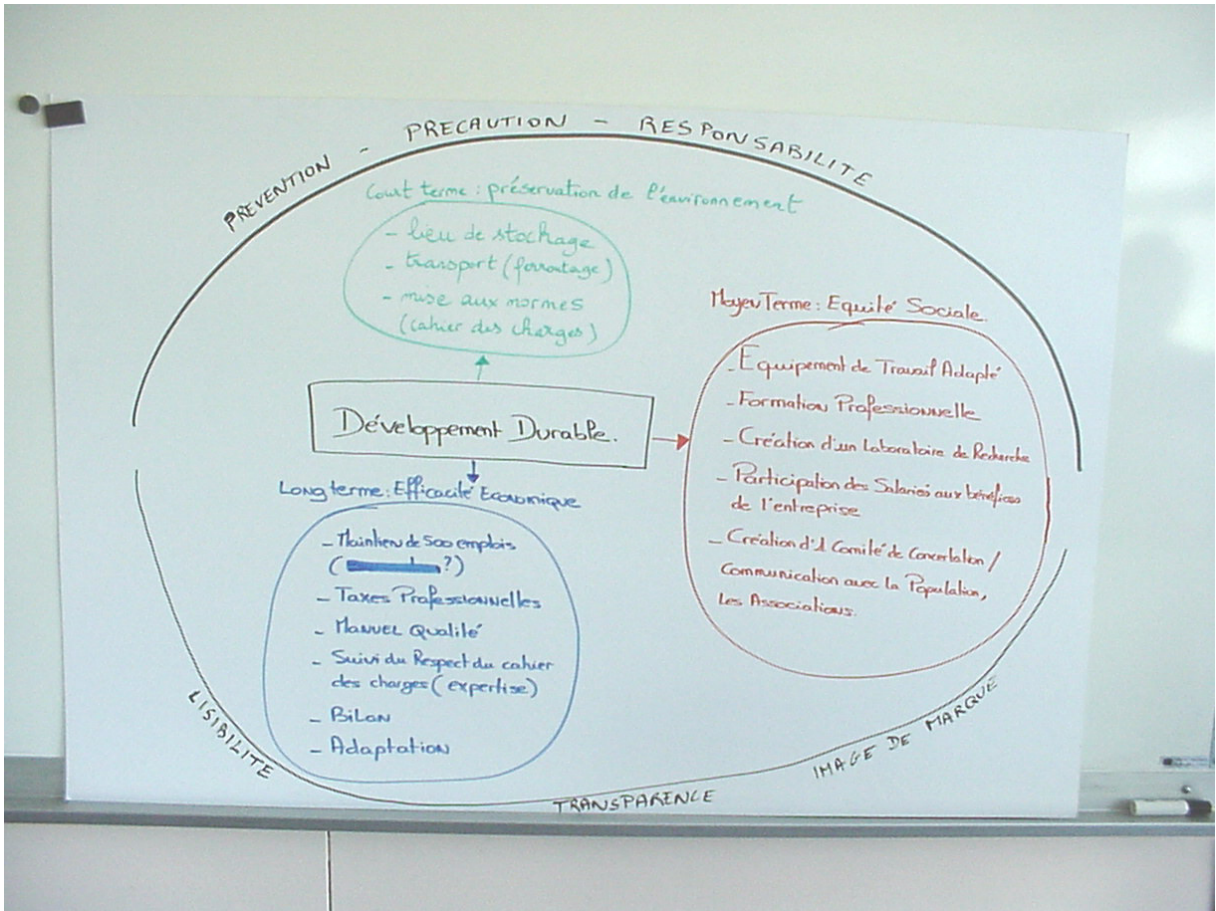 PREVENTION - PRECAUTION - RESPONSABILITE
Court terme : préservation de l'environnement
- lieu de stockage
- transport (ferroutage)
- mise aux normes
(cahier des charges)
Moyen Terme : Equité Sociale.
- Equipement de Travail Adapté
- Formation Professionnelle
- Création d'un Laboratoire de Recherche
- Participation des Salariés aux bénéfices
de l'entreprise
- Création d'1 Comité de Concertation /
Communication avec la Population,
Les Associations.
Développement Durable.
Long terme : Efficacité Economique
- Maintien de 500 emplois
( ?)
- Taxes Professionnelles
- Manuel Qualité
- Suivi du Respect du cahier
des charges (expertise)
- Bilan
- Adaptation
LISIBILITE
TRANSPARENCE
IMAGE DE MARQUE